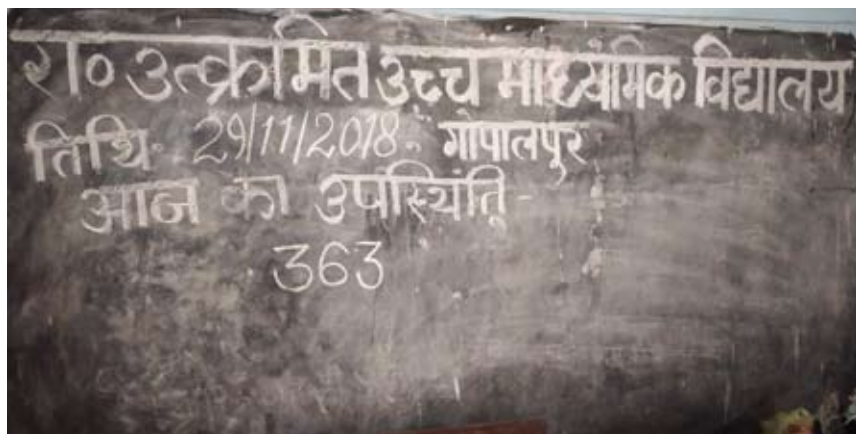 रा० उत्क्रमित उच्च माध्यमिक विद्यालय
तिथि- 29/11/2018. गोपालपुर
आज का उपस्थिति -
363